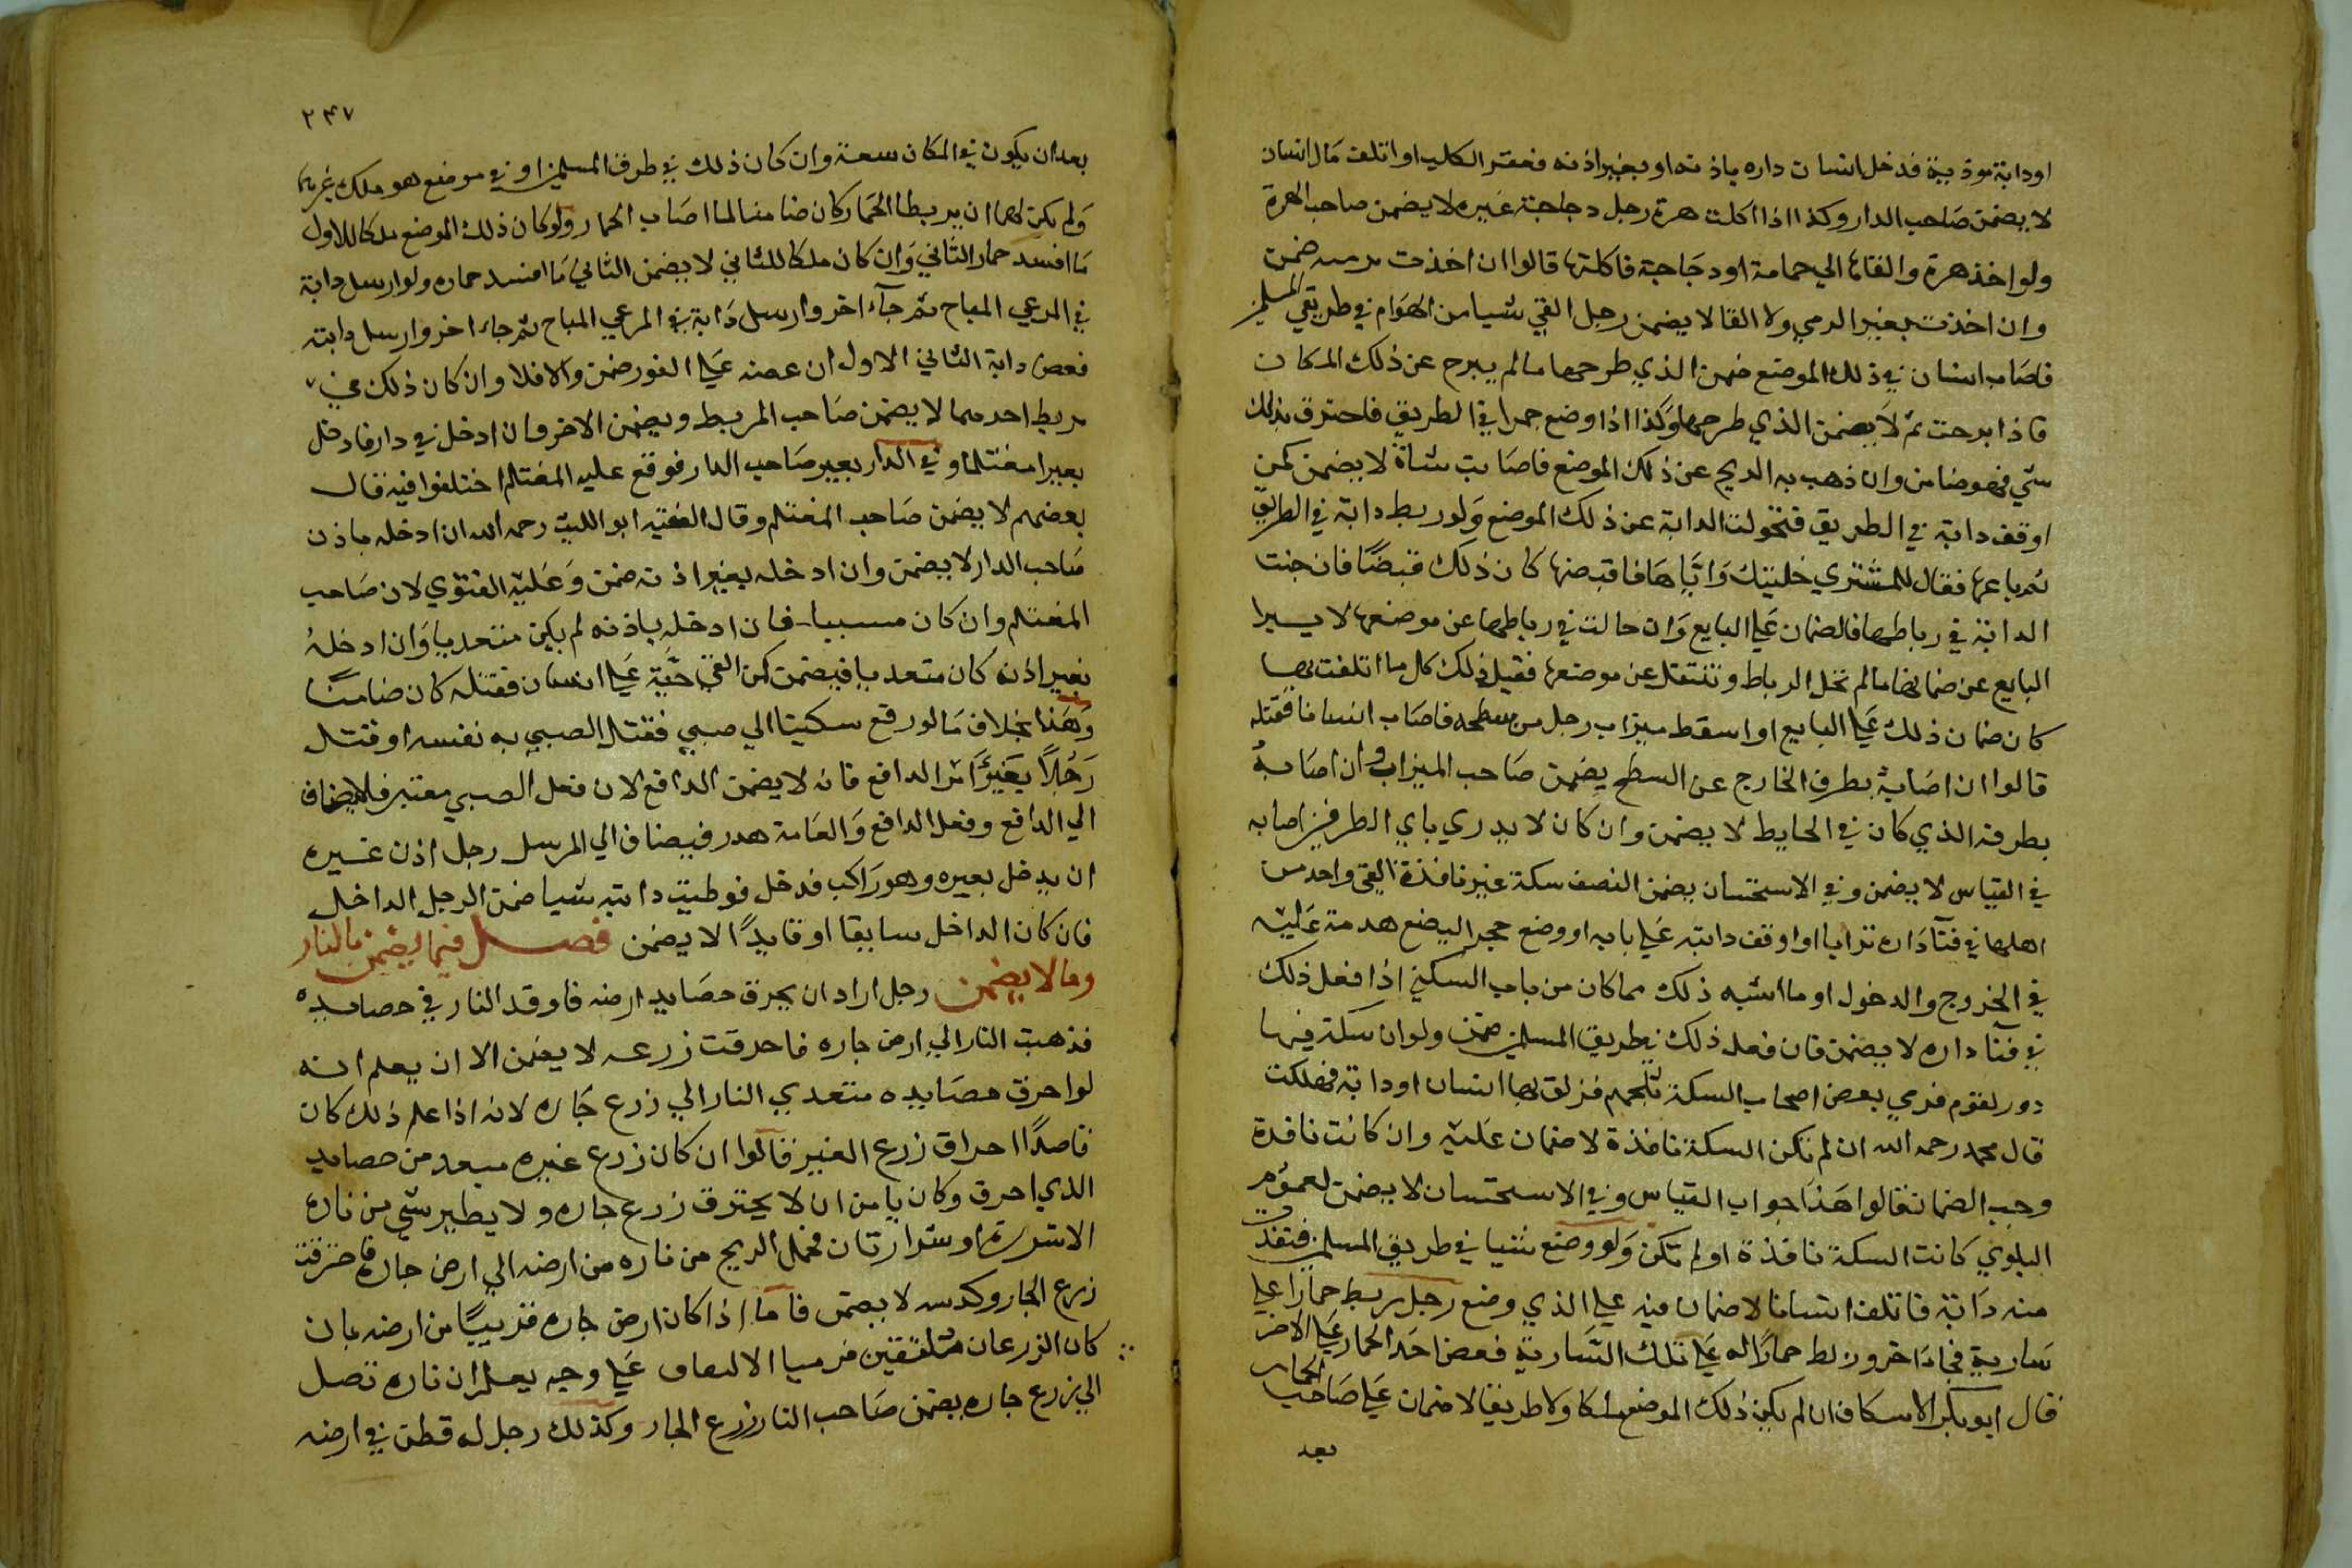 او دابة موذية فدخل انسان داره باذنه او بغير اذنه فعقر الكلب او اتلفت مال انسان
لا يضمن صاحب الدار وكذا اذا اكلت هرة رجل دجاجة غيره لا يضمن صاحب الهرة
ولو اخذ هرة والقاها الي حمامة او دجاجة فاكلتها قالوا ان اخذت برميه ضمن
وان اخذت بغير الرمي ولا القا لا يضمن رجل القي شيا من الهوام في طريق المسلمين
فاصاب انسان في ذلك الموضع ضمن الذي طرحها ما لم يبرح عن ذلك المكان
فاذا برحت ثم لا يضمن الذي طرحها وكذا اذا وضع جمرا في الطريق فاحترق بذلك
شي فهو ضامن وان ذهب به الريح عن ذلك الموضع فاصابت شاة لا يضمن كمن
اوقف دابة في الطريق فتحولت الدابة عن ذلك الموضع ولو ربط دابة في الطريق
ثم باعها فقال للمشتري خليتك واياها فاقبضها كان ذلك قبضا فان جنت
الدابة في رباطها فالضمان علي البايع وان حالت في رباطها عن موضعها لا يبرا
البايع عن ضمانها ما لم تحل الرباط وتنتقل عن موضعها فقيل ذلك كل ما اتلفت بها
كان ضمان ذلك علي البايع او اسقط ميزاب رجل من سطحه فاصاب انسانا فقتله
قالوا ان اصابة بطرف الخارج عن السطح يضمن صاحب الميزاب وان اصابه
بطرفه الذي كان في الحايط لا يضمن وان كان لا يدري باي الطرفين اصابه
في القياس لا يضمن وفي الاستحسان يضمن النصف سكة غير نافذة القي واحد من
اهلها في فنآ داره ترابا او اوقف دابته علي بابه او وضع حجر اليضع قدمه عليه
في الخروج والدخول او ما اشبه ذلك مما كان من باب السكني اذا فعل ذلك
في فنآ داره لا يضمن فان فعل ذلك في طريق المسلمين ضمن ولو ان سكة فيها
دور لقوم فرمي بعض اصحاب السكة ثلجهم فزلق بها انسان او دابة فهلكت
قال محمد رحمه الله ان لم تكن السكة نافذة لا ضمان عليه وان كانت نافدة
وجب الضمان قالوا هذا جواب القياس وفي الاستحسان لا يضمن لعموم
البلوي كانت السكة نافذة او لم تكن ولو وضع شيا في طريق المسلمين فنفرت
منه دابة فاتلفت انسانا لا ضمان فيه علي الذي وضع رجل ربط حمارا علي
سارية فجاء آخر وربط حمارا له علي تلك السارية فعض احد الحمارين علي الاخر
قال ابو بكر الاسكاف ان لم يكن ذلك الموضع ملكا ولا طريقا لا ضمان علي صاحب الحمار
بعد
٢٤٧
بعد ان يكون في المكان سعة وان كان ذلك في طرق المسلمين او في موضع هو ملك غيرهما
ولم يكن لهما ان يربطا الحمار كان ضامنا لما اصاب الحمار ولو كان ذلك الموضع ملكا للاول
ما افسد حمار الثاني وان كان ملكا للثاني لا يضمن الثاني ما افسد حماره ولو ارسل دابة
في المرعي المباح ثم جآء اخر وارسل دابة في المرعي المباح ثم جاء اخر وارسل دابته
فعض دابة الثاني الاول ان عضه علي الفور ضمن والا فلا وان كان ذلك في
مربط احدهما لا يضمن صاحب المربط ويضمن الاخر فان ادخل في دار فادخل
بعيرا مغتلما وفي الدار بعير صاحب الدار فوقع عليه المغتلم اختلفوا فيه قال
بعضهم لا يضمن صاحب المغتلم وقال الفقيه ابو الليث رحمه الله ان ادخله باذن
صاحب الدار لا يضمن وان ادخله بغير اذنه ضمن وعليه الفتوي لان صاحب
المغتلم وان كان مسببا فان ادخله باذنه لم يكن متعديا وان ادخله
بغير اذنه كان متعديا فيضمن كمن القي حية علي انسان فقتله كان ضامنا
وهذا بخلاف ما لو رفع سكينا الي صبي فقتل الصبي به نفسه او قتل
رجلا بغير امر الدافع فانه لا يضمن الدافع لان فعل الصبي معتبر فلا يضاف
الي الدافع وفعل الدافع والعامة هدر فيضاف الي المرسل رجل اذن غيره
ان يدخل بعيره وهو راكب فدخل فوطيت دابته شيا ضمن الرجل الداخل
فان كان الداخل سايقا او قايدا لا يضمن فصل فيما يضمن بالنار
وما لا يضمن رجل اراد ان يحرق حصايد ارضه فاوقد النار في حصايده
فذهبت النار الي ارض جاره فاحرقت زرعه لا يضمن الا ان يعلم انه
لو احرق حصايده متعدي النار الي زرع جاره لانه اذا علم ذلك كان
قاصدا احراق زرع الغير قالوا ان كان زرع غيره مبعد من حصايد
الذي احرق وكان يامن ان لا يحترق زرع جاره ولا يطير شي من ناره
الا شررة او شرارتان فحمل الريح من ناره من ارضه الي ارض جاره فاحترقت
زرع الجار وكدسه لا يضمن فاما اذا كان ارض جاره قريبا من ارضه بان
كان الزرعان ملتفقين قريبا الالصاق علي وجه يعلم ان ناره تصل
الي زرع جاره يضمن صاحب النار زرع الجار وكذلك رجل له قطن في ارضه